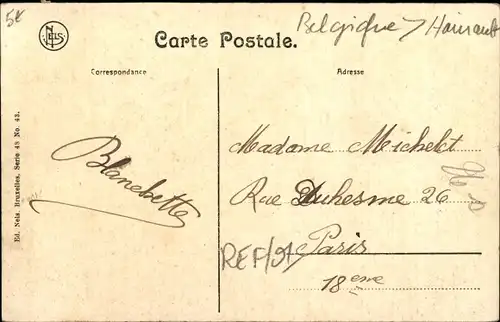 5€
Belgique / Hainaut
NELS
Carte Postale.
Correspondance
Adresse
Ed. Nels, Bruxelles, Serie 48 No. 43.
Blanchette
Madame Michelet
Rue Duhesme 26
Paris
18eme
REF/91